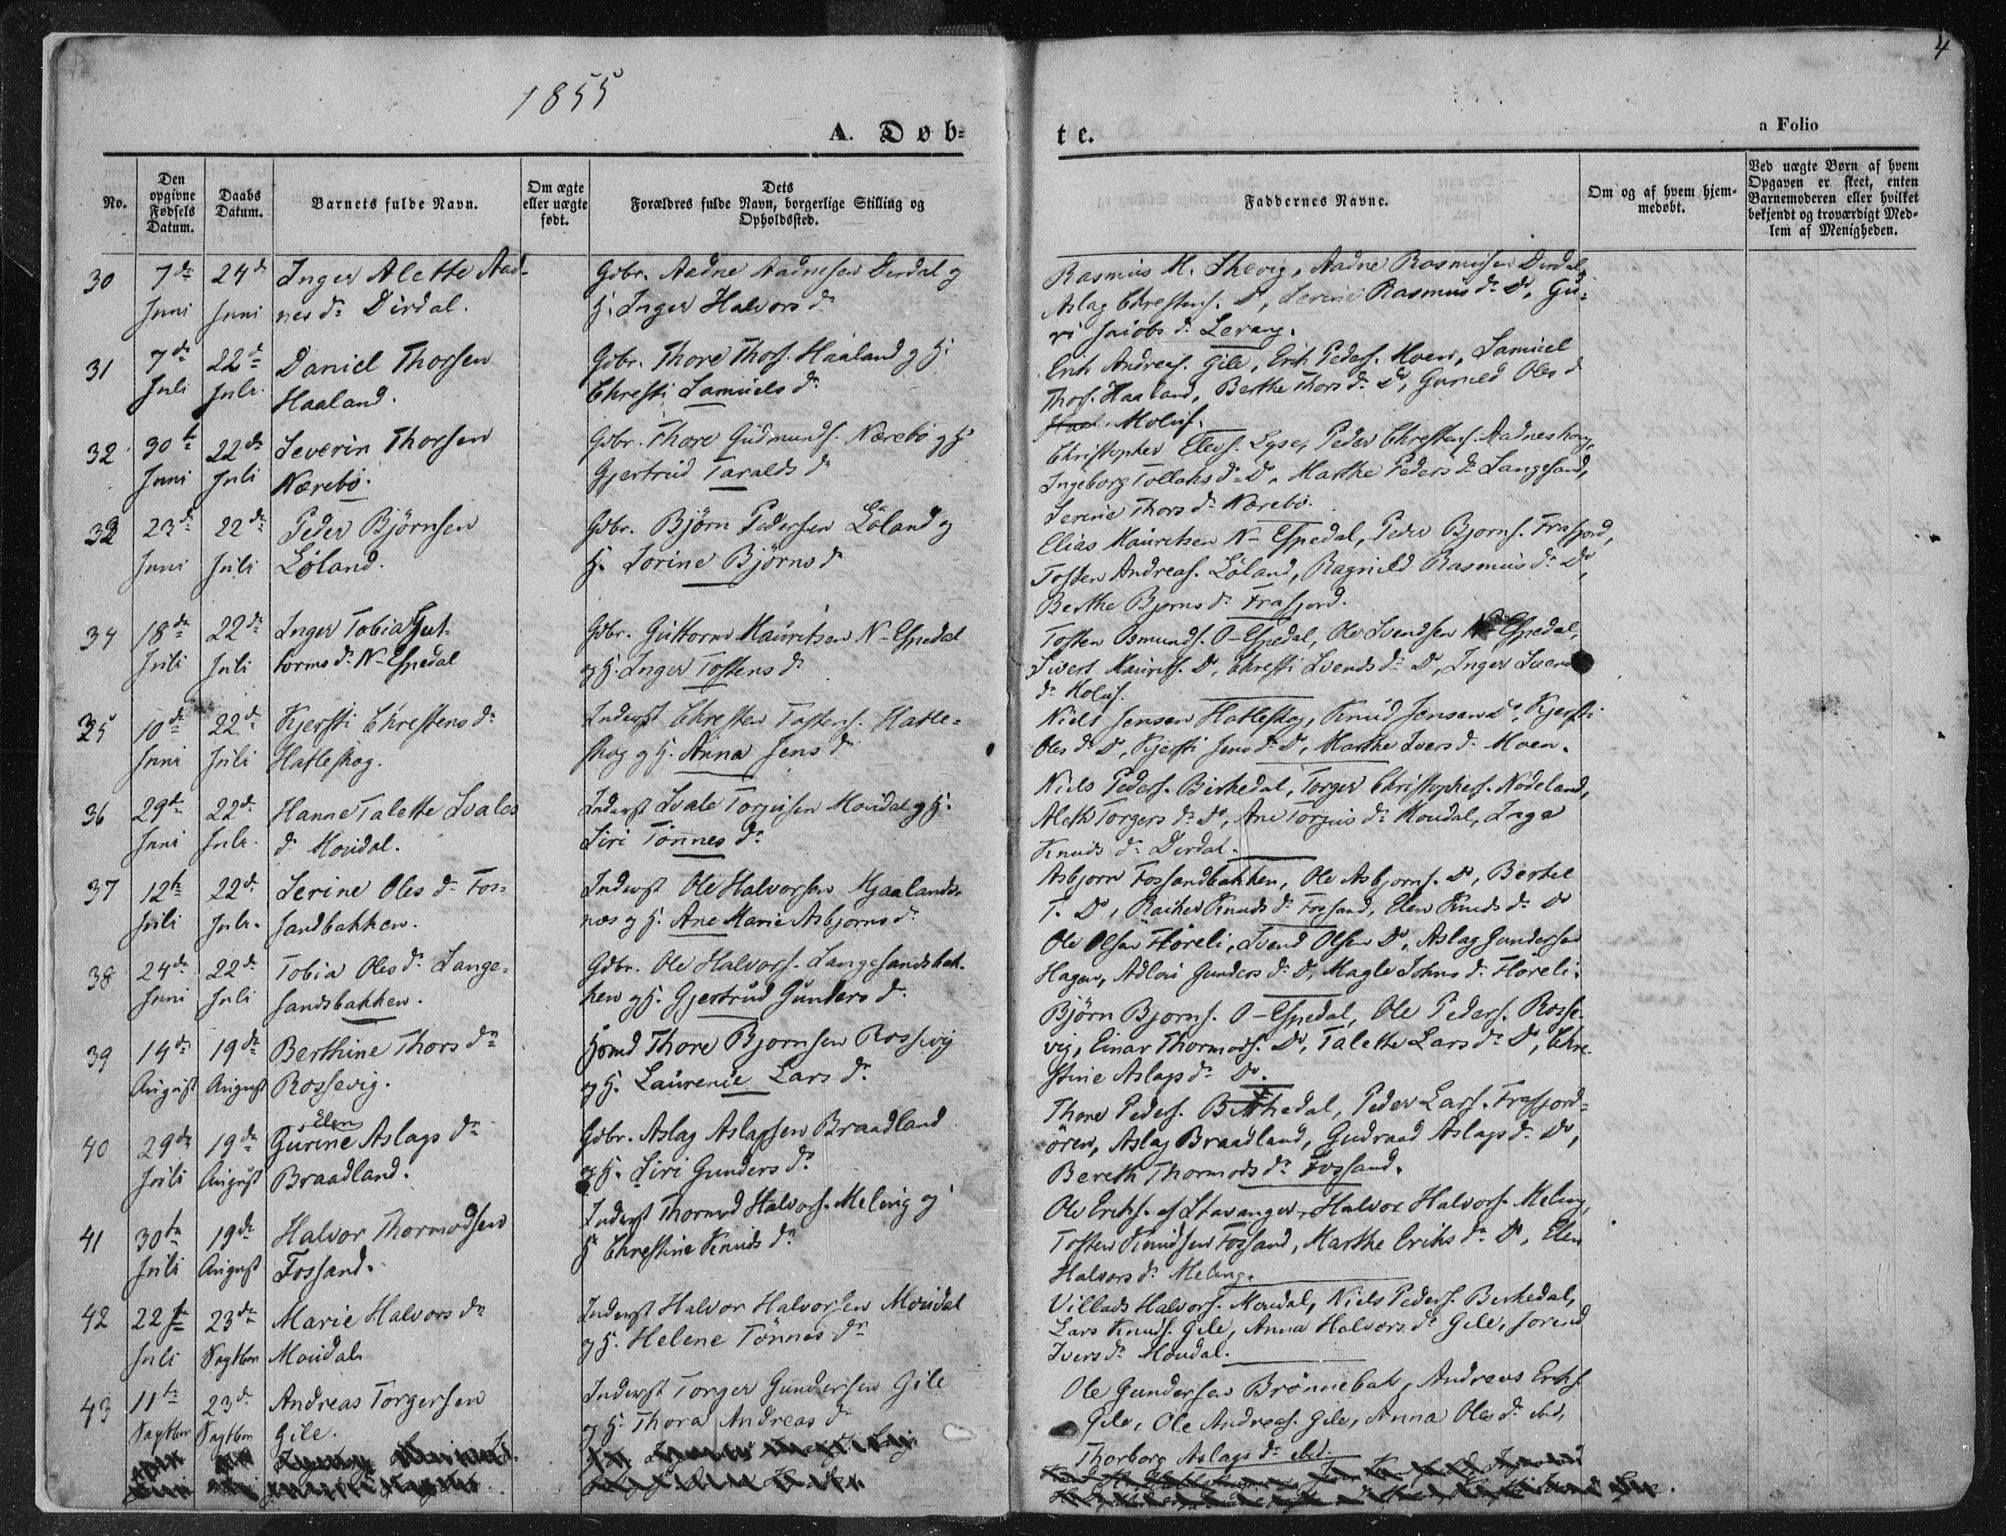 4
1855
A. Døb=
te.
a Folio
No.
Den opgivne Fødsels Datum.
Daabs Datum.
Barnets fulde Navn.
Om ægte eller uægte født.
Dets Forældres fulde Navn, borgerlige Stilling og Opholdssted.
Faddernes Navne.
Om og af hvem hjemmedøbt.
Ved uægte Børn af hvem Opgaven er skeet, enten Barnemoderen eller hvilket bekjendt og troværdigt Medlem af Menigheden.
30 7de Juni 24d Juni
Inger Alette Aad-
nes dr Dirdal.
Gdbr. Aadne Aadnesen Derdal og
H. Inger Halvors dr
Rasmus M. , Aadne Rasmusen Derdal,
Aslag Chrestens. Do, Serine Rasmus dr Do, Gu-
ri Jacobs dr Lerang.
31 7de Juli 22de Juli
Daniel Thorsen
Haaland.
Gdbr. Thore Thors. Haaland og H.
Chresti Samuels dr
Erik Andreas. Gile, Erik Peders. Moen, Samuel
Thors. Haaland, Berthe Thors dr Do, Gunild Oles d
Moluf.
32 30te Juni 22de Juli
Severin Thorsen
Nærebø.
Gdbr. Thore Gudmunds. Nærebø og H
Gjertrud Taralds dr
Christopher Elevs. Lyse, Peder Chrestens. Aadneskoug,
Ingeborg Tollaks dr Do, Marthe Peders dr Langesand,
Serine Thors dr Nærebø.
33 23de Juni 22de Juli
Peder Bjørnsen
Løland.
Gdbr. Bjørn Pedersen Løland og
H. Sorine Bjørns dr
Elias Mauritsen N-Espedal, Peder Bjørns. Frafjord,
Tosten Andreas. Løland, Ragnild Rasmus dr Do,
Berthe Bjørns dr Frafjord.
34 18de Juli 22de Juli
Inger Tobia Gut-
torms dr N-Espedal
Gdbr. Guttorm Mauritsen N-Espedal
og H. Inger Tostens dr
Tosten Osmunds. O-Espedal, Ole Svendsen N-Espedal,
Sivert Maurits. Do, Chresti Svends dr Do, Inger Svends
dr Moluf.
35 10de Juni 22de Juli
Kjersti Chrestens dr
Hatleskog.
Inderst Chresten Tostens. Hatle-
skog og H. Anna Jens dr
Niels Jensen Hatleskog, Knud Jensen Do, Kjersti
Oles dr Do, Kjersti Jens dr Do, Marthe Ivers dr Moen.
36 29de Juni 22de Juli
Hanne Talette Svales
dr Moudal.
Inderst Svale Torjusen Moudal og H.
Siri Tønnes dr
Niels Peders. Birkedal, Torger Christophers. Nødeland,
Aleth Torgers dr Do, Ane Torjus dr Moudal, Inga
Knuds dr Dirdal.
37 12te Juli 22de Juli
Serine Oles dr Fos-
sandbakken.
Inderst Ole Halvorsen Hjaalands-
næs og H. Ane Marie Asbjørns dr
Asbjørn Fossandbakken, Ole Asbjørns. Do, Bertel
T. Do, Rakel Knuds dr Fossand, Elen Knuds dr Do
38 24de Juni 22de Juli
Tobia Oles dr Lange-
sandsbakken.
Gdbr. Ole Halvors. Langesandsbak-
ken og H. Gjertrud Gunders dr
Ole Olsen Høreli, Svend Olsen Do, Aslag Gundersen
Hagen, Adlou Gunders dr Do, Magle Johns dr Høreli.
39 14de August 19de August
Berthine Thors dr
Rossevig.
Hsmd Thore Bjørnsen Rossevig
og H. Laurenie Lars dr
Bjørn Bjørns. O-Espedal, Ole Peders. Rosse-
vig, Einar Thormods. Do, Talette Lars dr Do, Chre-
stine Aslags dr Do.
40 29de Juli 19de August
Elen
Gurine Aslags dr
Braadland.
Gdbr. Aslag Aslagsen Braadland
og H. Siri Gunders dr
Thore Peders. Birkedal, Peder Lars. Frafjord-
ören, Aslag Braadland, Gudraad Aslags dr Do,
Bereth Thormods dr Fossand.
41 30te Juli 19de August
Halvor Thormodsen
Fossand.
Inderst Thormod Halvors. Meling og
H Chrestine Knuds dr
Ole Eriks. af Stavanger, Halvor Halvors. Meling,
Tosten Knudsen Fossand, Marthe Eriks dr Do, Elen
Halvors dr Meling.
42 22de Juli 23de Septbr
Marie Halvors dr
Moudal.
Inderst Halvor Halvorsen Moudal
og H. Helene Tønnes dr
Villads Halvors. Moudal, Niels Peders. Berkedal,
Lars Knuds. Gile, Anna Halvors dr Gile, Sorend
Ivers dr Moudal.
43 11te Septbr 23de Septbr
Andreas Torgersen
Gile.
Inderst Torger Gundersen Gile
og H. Thora Andreas dr
Ole Gundersen Brønnebak, Andreas Eriks.
Gile, Ole Andreas. Gile, Anna Oles dr ibd,
Thorborg Aslags dr ibd.